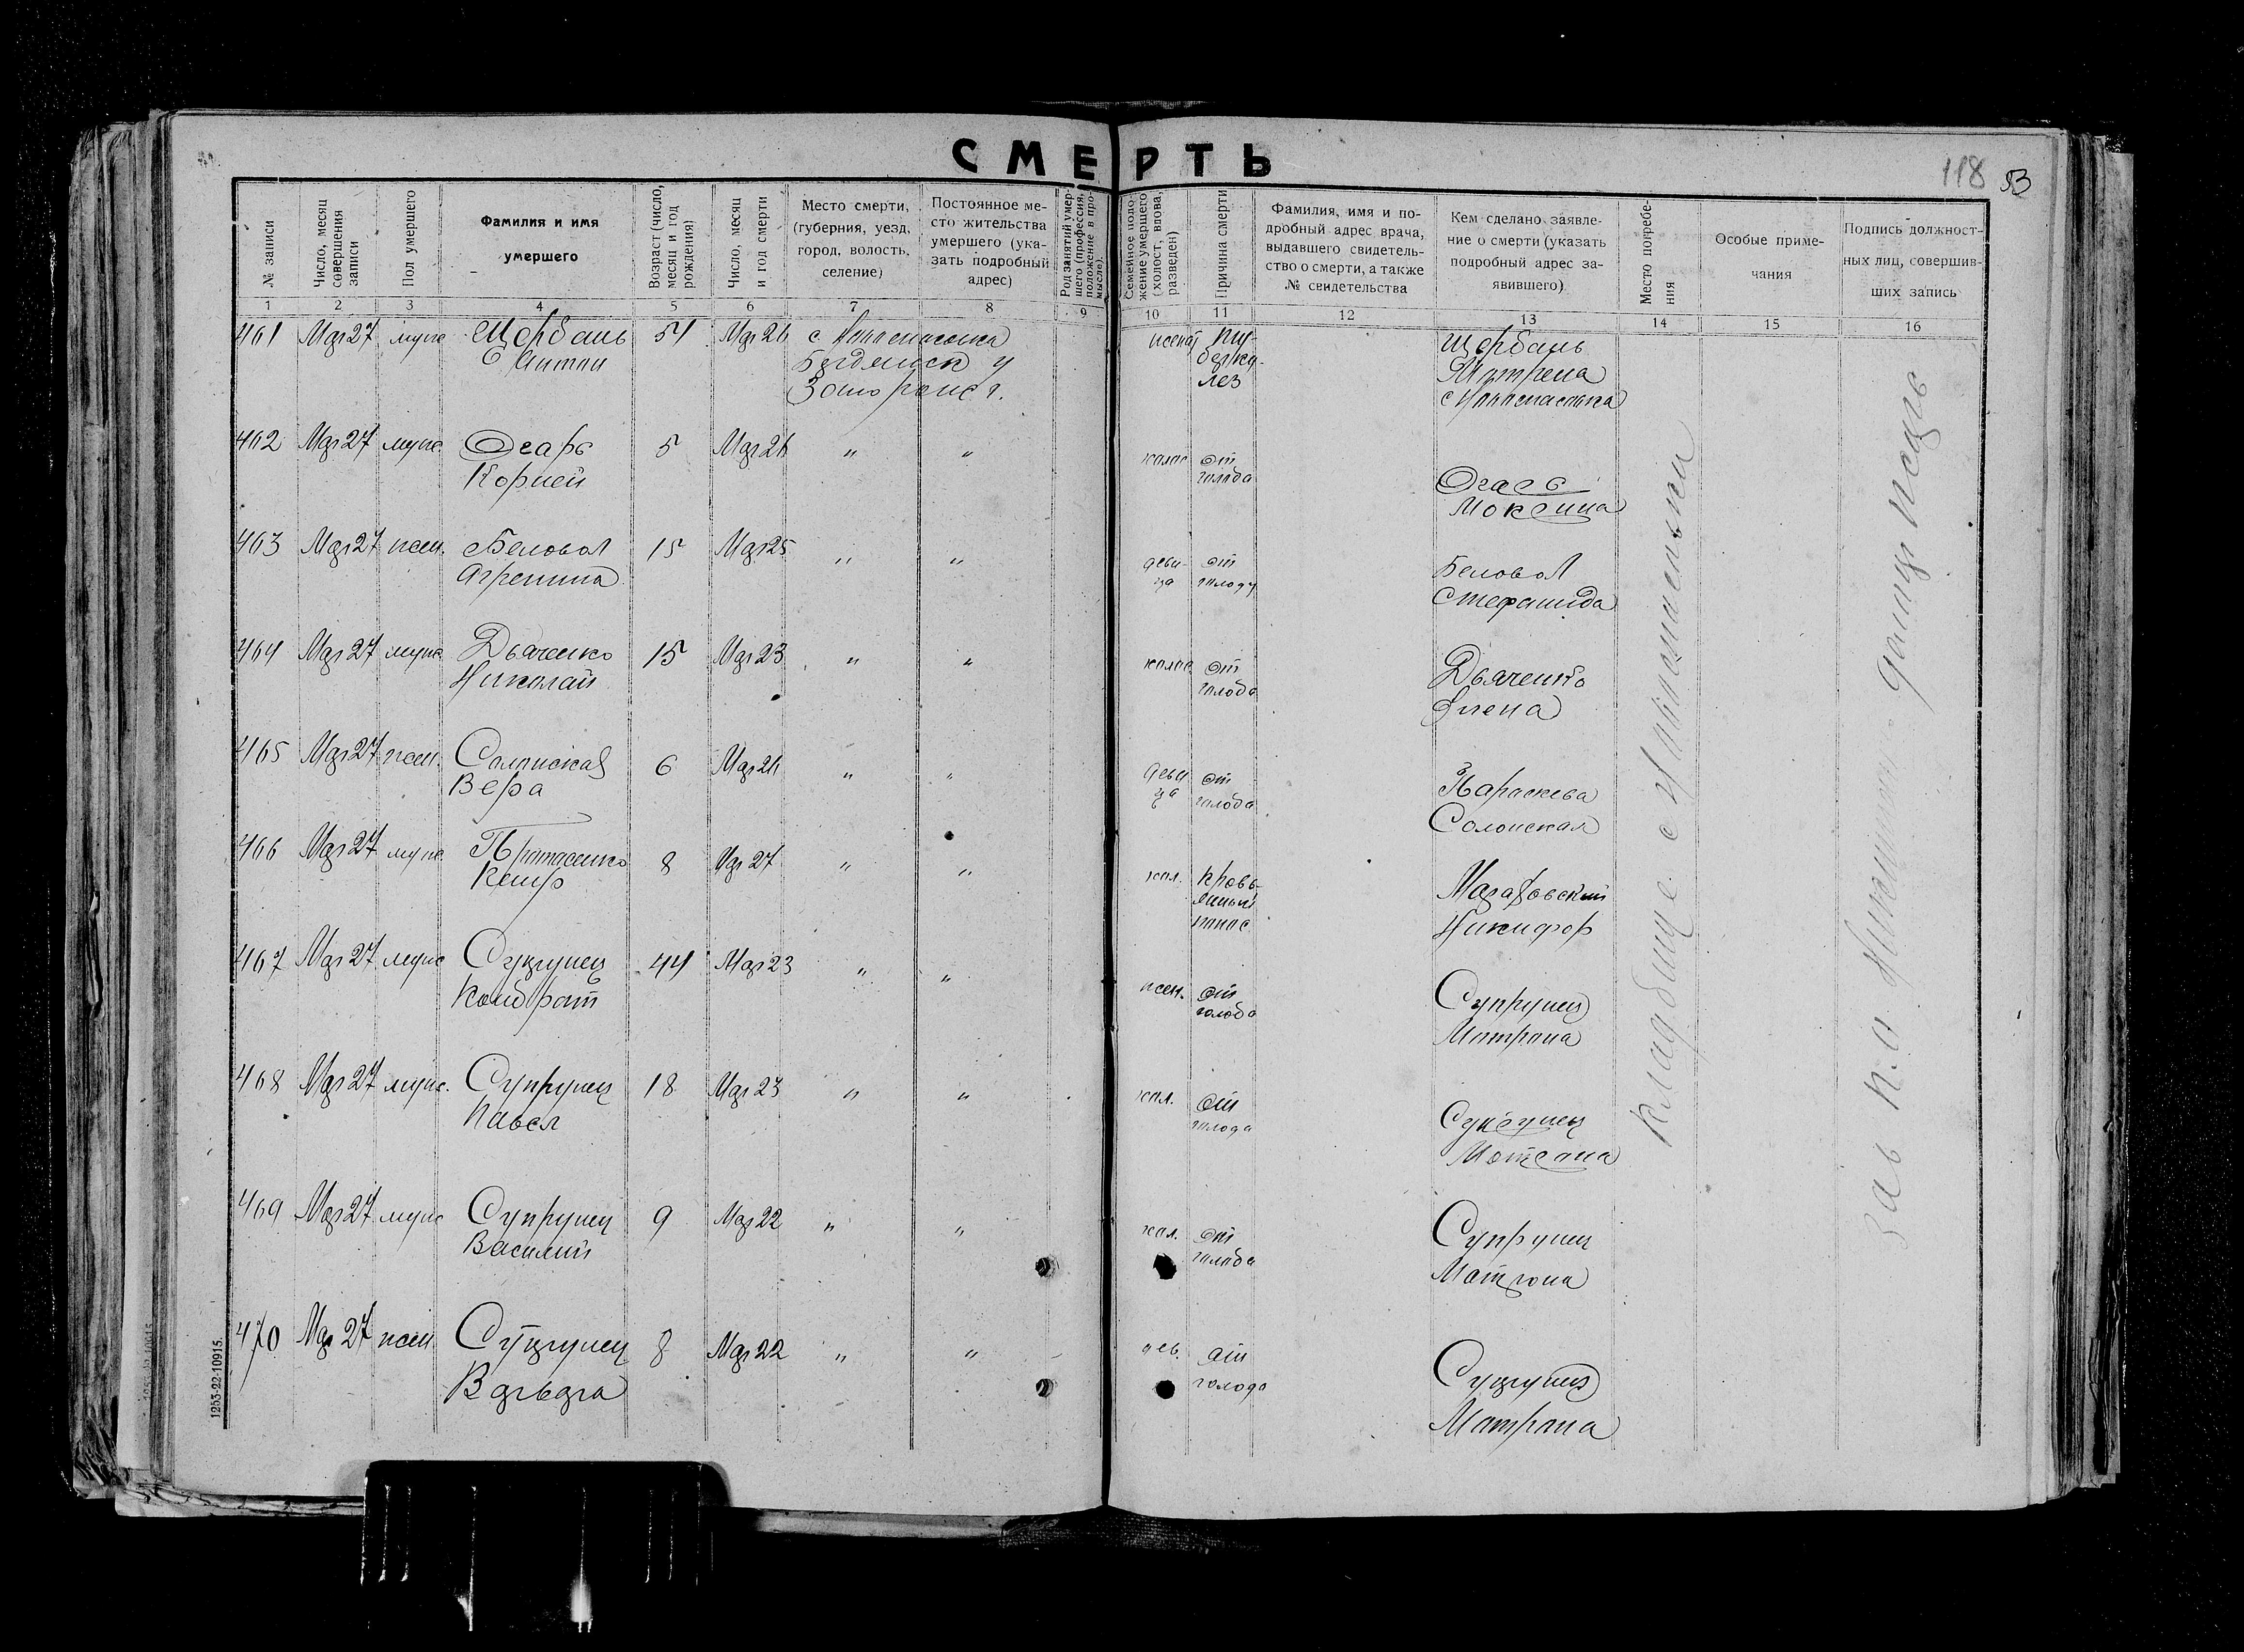 СМЕРТЬ
118 53
№ записи
Число, месяц совершения записи
Пол умершего
Фамилия и имя
умершего
Возраст (число, месяц и год рождения)
Число, месяц и год смерти
Место смерти,
(губерния, уезд,
город, волость,
селение)
Постоянное ме-
сто жительства
умершего (ука-
зать подробный
адрес)
Род занятий умер-
шего (профессия,
положение в про-
мысле).
Семейное поло-
жение умершего
(холост, вдова,
разведен)
Причина смерти
Фамилия, имя и по-
дробный адрес врача,
выдавшего свидетель-
ство о смерти, а также
№ свидетельства
Кем сделано заявле-
ние о смерти (указать
подробный адрес за-
явившего)
Место погребе-
ния
Особые приме-
чания
Подпись должност-
ных лиц, совершив-
ших запись
1 2 3 4 5 6 7 8 9 10 11 12 13 14 15 16
461 Мая 27 муж Щербань 51 Мая 26 с
Антон
Бердянск у
женат ту-
берку-
лез
Щербань
Матрена
462 Мая 27 муж. 5 " "
Корней
холос от
голода
463 Мая 27 жен. Беловол 15 Мая 25 " "
Агрепина
деви-
ца
от
голоду
Беловол
Стефанида
464 Мая 27 муж. Дьяченко 15 Мая 23 " "
Николай
холос от
голода
Дьяченко
Елена
465 Мая 27 жен. Солонская 6 " "
Вера
деви
ца
от
голода
Параскева
Солонская
466 Мая 27 муж. 8 Мая 27 " "
хол. кровь-
яный
понос
Никифор
467 Мая 27 муж Супрунец 44 Мая 23 " "
Кондрат
жен. от
голода
Супрунец
Матрона
468 Мая 27 муж. Супрунец 18 Мая 23 " "
Павел
хол. от
голода
Супрунец
Матрона
469 Мая 27 муж Супрунец 9 Мая 22 " "
Василий
хол. от
голода
Супрунец
Матрона
470 Мая 27 жен Супрунец 8 Мая 22 " "
дев. от
голода
Супрунец
Матрона
Кладбище с
1253-22-10915.